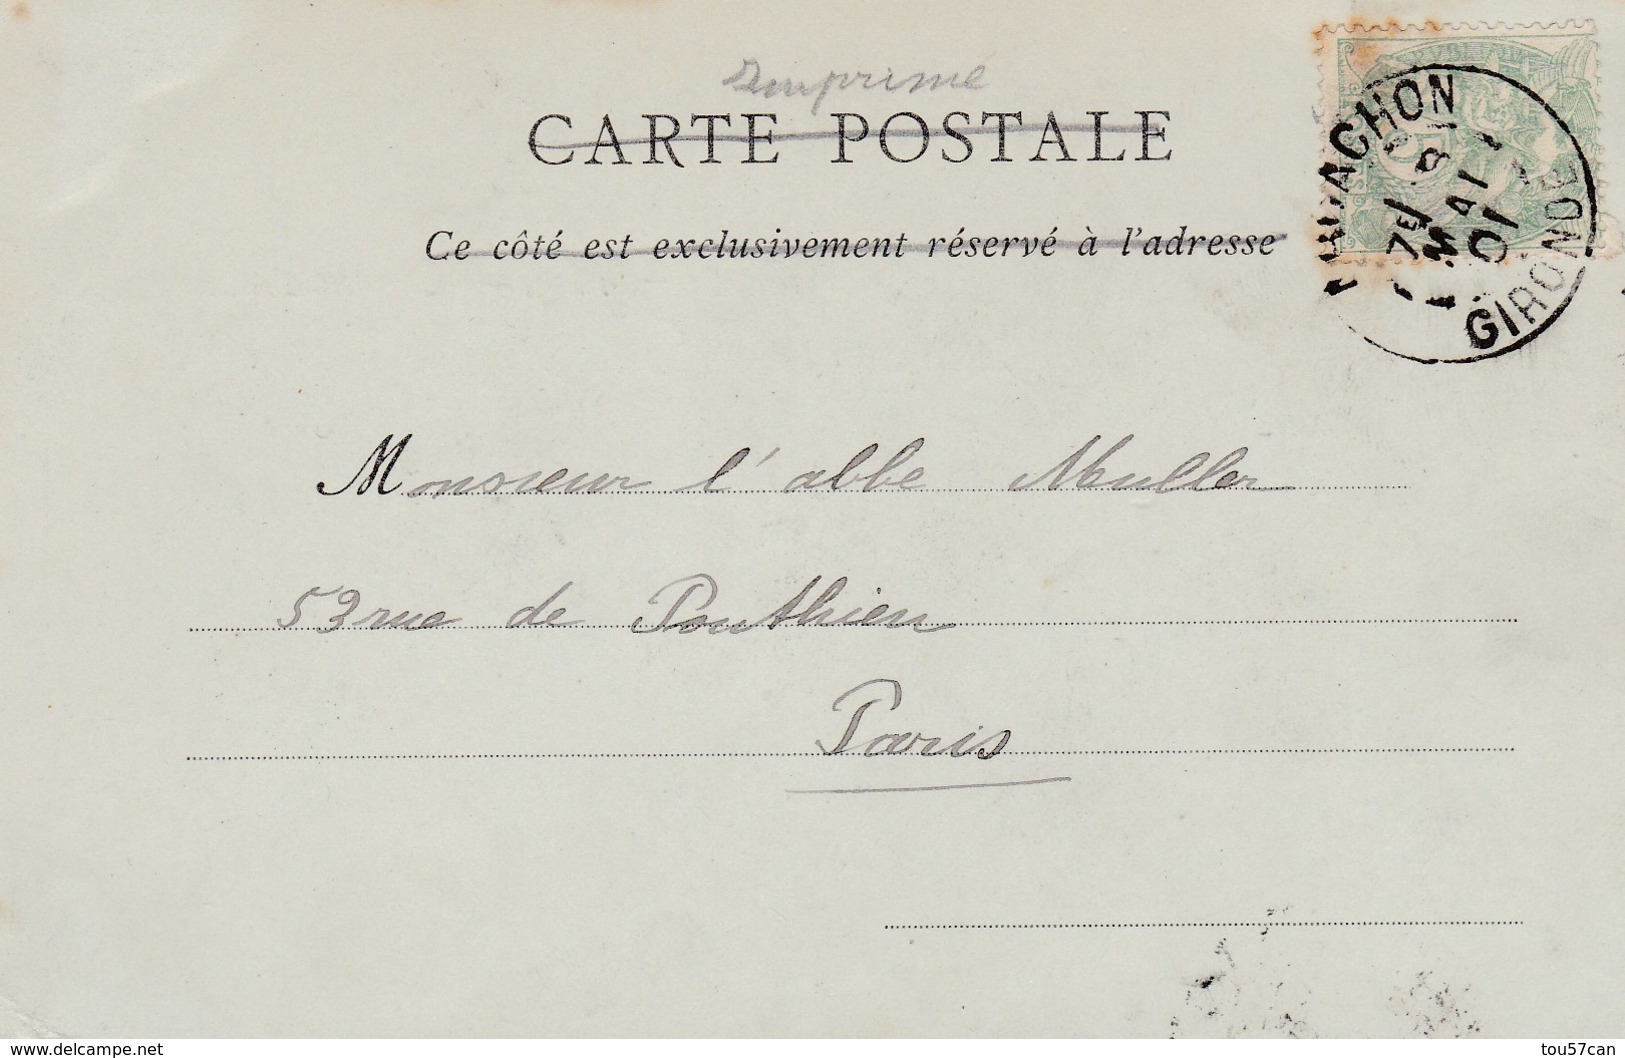 Imprimé
CARTE POSTALE
Ce côté est exclusivement réservé à l'adresse
ACHON
GIRONDE
7E
8
MAI
01
Monsieur l'abbe Muller
53 rue de Ponthieu
Paris
www.delcampe.net
tou57can